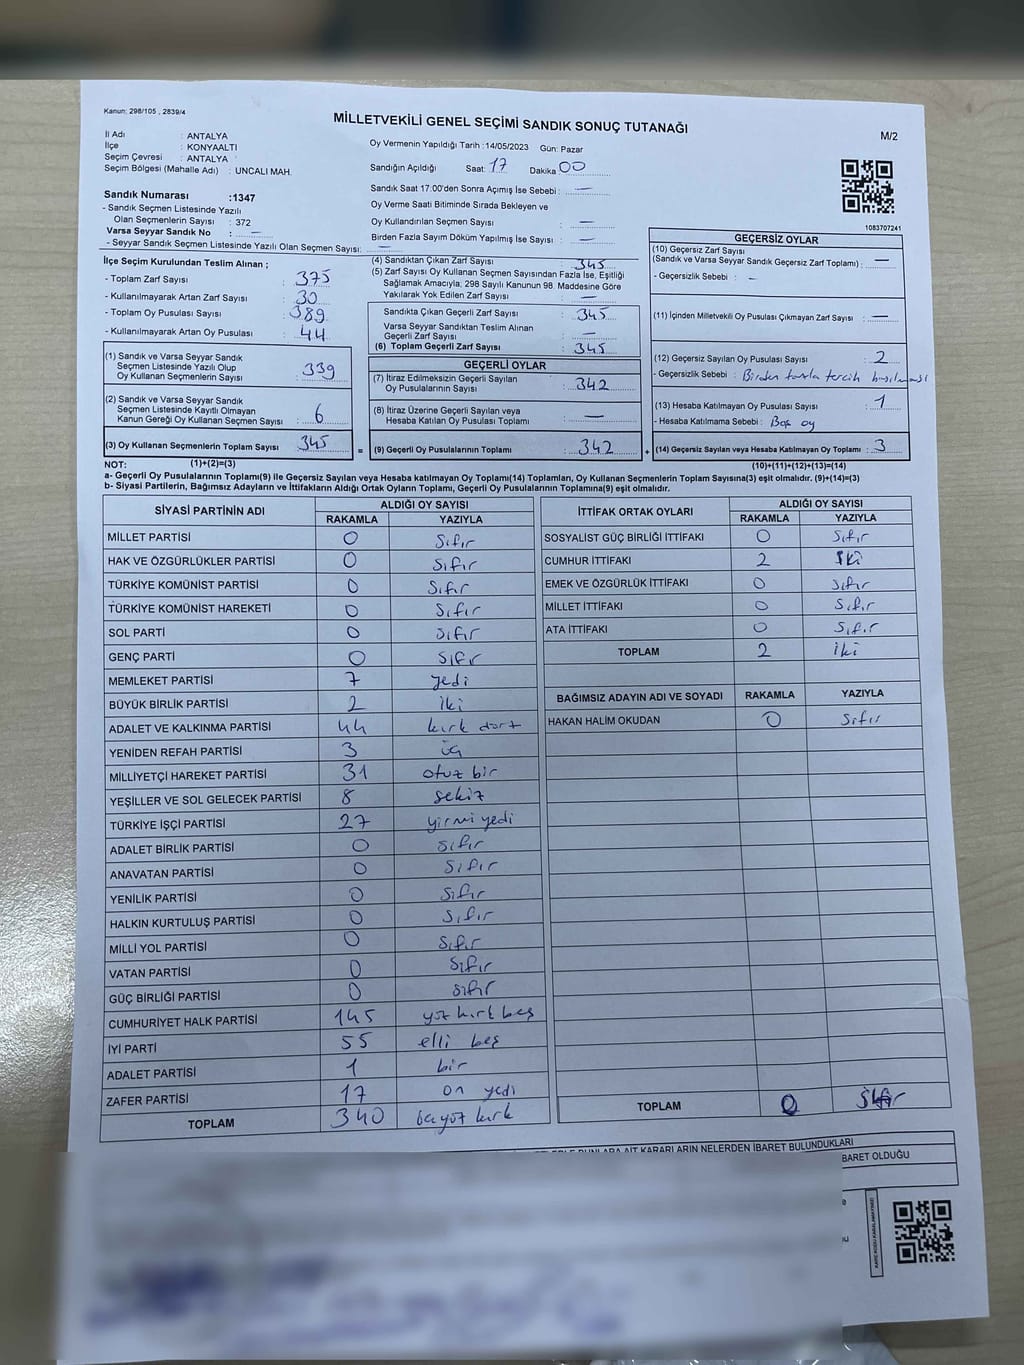 Kanun: 298/105 , 2839/4
MİLLETVEKİLİ GENEL SEÇİMİ SANDIK SONUÇ TUTANAĞI
M/2
İl Adı : ANTALYA
İlçe : KONYAALTI
Seçim Çevresi : ANTALYA
Seçim Bölgesi (Mahalle Adı) : UNCALI MAH.
Oy Vermenin Yapıldığı Tarih : 14/05/2023 Gün: Pazar
Sandığın Açıldığı Saat: 17 Dakika 00
Sandık Saat 17:00'den Sonra Açımış İse Sebebi : —
Oy Verme Saati Bitiminde Sırada Bekleyen ve
Oy Kullandırılan Seçmen Sayısı : —
Birden Fazla Sayım Döküm Yapılmış İse Sayısı : —
1083707241
Sandık Numarası :1347
- Sandık Seçmen Listesinde Yazılı
Olan Seçmenlerin Sayısı : 372
Varsa Seyyar Sandık No : —
- Seyyar Sandık Seçmen Listesinde Yazılı Olan Seçmen Sayısı: —
İlçe Seçim Kurulundan Teslim Alınan ;
- Toplam Zarf Sayısı : 375
- Kullanılmayarak Artan Zarf Sayısı : 30
- Toplam Oy Pusulası Sayısı : 389
- Kullanılmayarak Artan Oy Pusulası : 44
(1) Sandık ve Varsa Seyyar Sandık
Seçmen Listesinde Yazılı Olup
Oy Kullanan Seçmenlerin Sayısı : 339
(2) Sandık ve Varsa Seyyar Sandık
Seçmen Listesinde Kayıtlı Olmayan
Kanun Gereği Oy Kullanan Seçmen Sayısı : 6
(3) Oy Kullanan Seçmenlerin Toplam Sayısı : 345
(4) Sandıktan Çıkan Zarf Sayısı : 345
(5) Zarf Sayısı Oy Kullanan Seçmen Sayısından Fazla İse, Eşitliği
Sağlamak Amacıyla; 298 Sayılı Kanunun 98. Maddesine Göre
Yakılarak Yok Edilen Zarf Sayısı : —
Sandıkta Çıkan Geçerli Zarf Sayısı : 345
Varsa Seyyar Sandıktan Teslim Alınan
Geçerli Zarf Sayısı : —
(6) Toplam Geçerli Zarf Sayısı : 345
GEÇERLİ OYLAR
(7) İtiraz Edilmeksizin Geçerli Sayılan
Oy Pusulalarının Sayısı : 342
(8) İtiraz Üzerine Geçerli Sayılan veya
Hesaba Katılan Oy Pusulası Toplamı : —
= (9) Geçerli Oy Pusulalarının Toplamı : 342
GEÇERSİZ OYLAR
(10) Geçersiz Zarf Sayısı
(Sandık ve Varsa Seyyar Sandık Geçersiz Zarf Toplamı) : —
- Geçersizlik Sebebi : —
(11) İçinden Milletvekili Oy Pusulası Çıkmayan Zarf Sayısı : —
(12) Geçersiz Sayılan Oy Pusulası Sayısı : 2
- Geçersizlik Sebebi : Birden fazla tercih basılması
(13) Hesaba Katılmayan Oy Pusulası Sayısı : 1
- Hesaba Katılmama Sebebi : Boş oy
+ (14) Geçersiz Sayılan veya Hesaba Katılmayan Oy Toplamı : 3
NOT: (1)+(2)=(3)
(10)+(11)+(12)+(13)=(14)
a- Geçerli Oy Pusulalarının Toplamı(9) ile Geçersiz Sayılan veya Hesaba katılmayan Oy Toplamı(14) Toplamları, Oy Kullanan Seçmenlerin Toplam Sayısına(3) eşit olmalıdır. (9)+(14)=(3)
b- Siyasi Partilerin, Bağımsız Adayların ve İttifakların Aldığı Ortak Oyların Toplamı, Geçerli Oy Pusulalarının Toplamına(9) eşit olmalıdır.
SİYASİ PARTİNİN ADI ALDIĞI OY SAYISI
RAKAMLA YAZIYLA
MİLLET PARTİSİ 0 Sıfır
HAK VE ÖZGÜRLÜKLER PARTİSİ 0 Sıfır
TÜRKİYE KOMÜNİST PARTİSİ 0 Sıfır
TÜRKİYE KOMÜNİST HAREKETİ 0 Sıfır
SOL PARTİ 0 Sıfır
GENÇ PARTİ 0 Sıfır
MEMLEKET PARTİSİ 7 yedi
BÜYÜK BİRLİK PARTİSİ 2 iki
ADALET VE KALKINMA PARTİSİ 44 kırk dört
YENİDEN REFAH PARTİSİ 3 üç
MİLLİYETÇİ HAREKET PARTİSİ 31 otuz bir
YEŞİLLER VE SOL GELECEK PARTİSİ 8 sekiz
TÜRKİYE İŞÇİ PARTİSİ 27 yirmi yedi
ADALET BİRLİK PARTİSİ 0 sıfır
ANAVATAN PARTİSİ 0 sıfır
YENİLİK PARTİSİ 0 Sıfır
HALKIN KURTULUŞ PARTİSİ 0 Sıfır
MİLLİ YOL PARTİSİ 0 Sıfır
VATAN PARTİSİ 0 Sıfır
GÜÇ BİRLİĞİ PARTİSİ 0 sıfır
CUMHURİYET HALK PARTİSİ 145 yüz kırk beş
İYİ PARTİ 55 elli beş
ADALET PARTİSİ 1 bir
ZAFER PARTİSİ 17 on yedi
TOPLAM 340 kırk
İTTİFAK ORTAK OYLARI ALDIĞI OY SAYISI
RAKAMLA YAZIYLA
SOSYALİST GÜÇ BİRLİĞİ İTTİFAKI 0 Sıfır
CUMHUR İTTİFAKI 2 İki
EMEK VE ÖZGÜRLÜK İTTİFAKI 0 sıfır
MİLLET İTTİFAKI 0 Sıfır
ATA İTTİFAKI 0 Sıfır
TOPLAM 2 iki
BAĞIMSIZ ADAYIN ADI VE SOYADI RAKAMLA YAZIYLA
HAKAN HALİM OKUDAN 0 sıfır
TOPLAM 0 Sıfır
KARARLARIN NELERDEN İBARET BULUNDUKLARI
BARET OLDUĞU